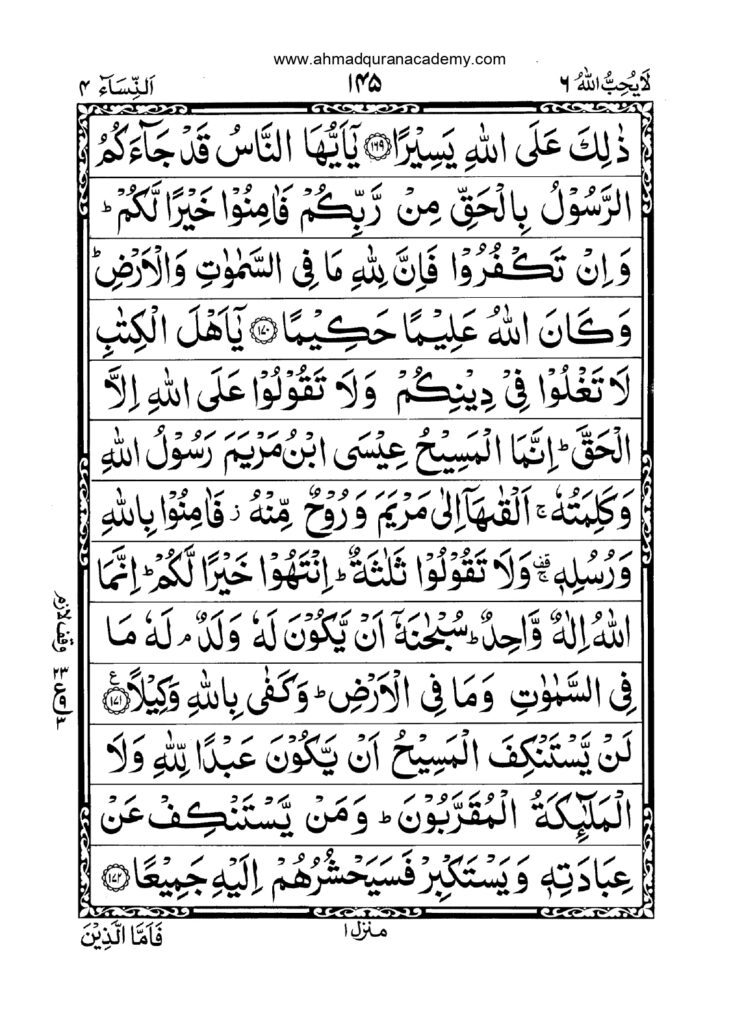 www.ahmadquranacademy.com
لَایُحِبُّ اللّٰهُ ۶
۱۴۵
اَلنِّسَآء ۴
ذٰلِكَ عَلَى اللّٰهِ يَسِيْرًا ﴿۱۶۹﴾ يٰۤاَيُّهَا النَّاسُ قَدْ جَآءَكُمُ
الرَّسُوْلُ بِالْحَقِّ مِنْ رَّبِّكُمْ فَاٰمِنُوْا خَيْرًا لَّكُمْ ؕ
وَ اِنْ تَكْفُرُوْا فَاِنَّ لِلّٰهِ مَا فِى السَّمٰوٰتِ وَالْاَرْضِ ؕ
وَ كَانَ اللّٰهُ عَلِيْمًا حَكِيْمًا ﴿۱۷۰﴾ يٰۤاَهْلَ الْكِتٰبِ
لَا تَغْلُوْا فِىْ دِيْنِكُمْ وَلَا تَقُوْلُوْا عَلَى اللّٰهِ اِلَّا
الْحَقَّ ؕ اِنَّمَا الْمَسِيْحُ عِيْسَى ابْنُ مَرْيَمَ رَسُوْلُ اللّٰهِ
وَ كَلِمَتُهٗ ۚ اَلْقٰىهَاۤ اِلٰى مَرْيَمَ وَ رُوْحٌ مِّنْهُ ز فَاٰمِنُوْا بِاللّٰهِ
وَ رُسُلِهٖ قف ۚ وَلَا تَقُوْلُوْا ثَلٰثَةٌ ؕ اِنْتَهُوْا خَيْرًا لَّكُمْ ؕ اِنَّمَا
اللّٰهُ اِلٰهٌ وَّاحِدٌ ؕ سُبْحٰنَهٗۤ اَنْ يَّكُوْنَ لَهٗ وَلَدٌ ۘ لَهٗ مَا
فِى السَّمٰوٰتِ وَمَا فِى الْاَرْضِ ؕ وَكَفٰى بِاللّٰهِ وَكِيْلًا ﴿۱۷۱﴾ ع
لَنْ يَّسْتَنْكِفَ الْمَسِيْحُ اَنْ يَّكُوْنَ عَبْدًا لِّلّٰهِ وَلَا
الْمَلٰٓئِكَةُ الْمُقَرَّبُوْنَ ؕ وَمَنْ يَّسْتَنْكِفْ عَنْ
عِبَادَتِهٖ وَيَسْتَكْبِرْ فَسَيَحْشُرُهُمْ اِلَيْهِ جَمِيْعًا ﴿۱۷۲﴾
وقف لازم
منزل ۱
فَاَمَّا الَّذِيْنَ